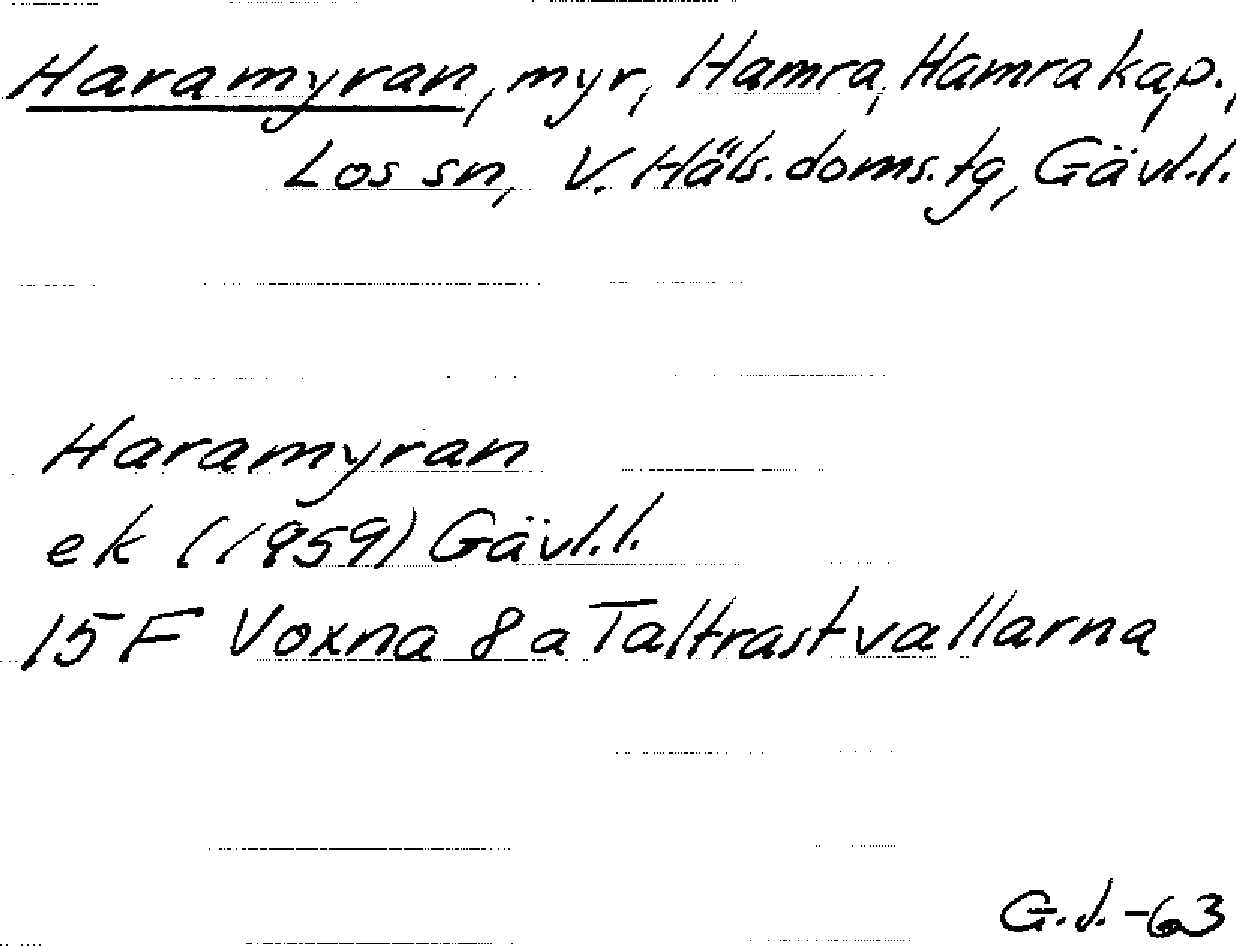 Haramyran, myr, Hamra, Hamra kap.,
Los sn, V. Häls. doms. tg, Gävl.l.
Haramyran
ek (1959) Gävl.l.
15 F Voxna 8 a Taltrastvallarna
G.J. -63